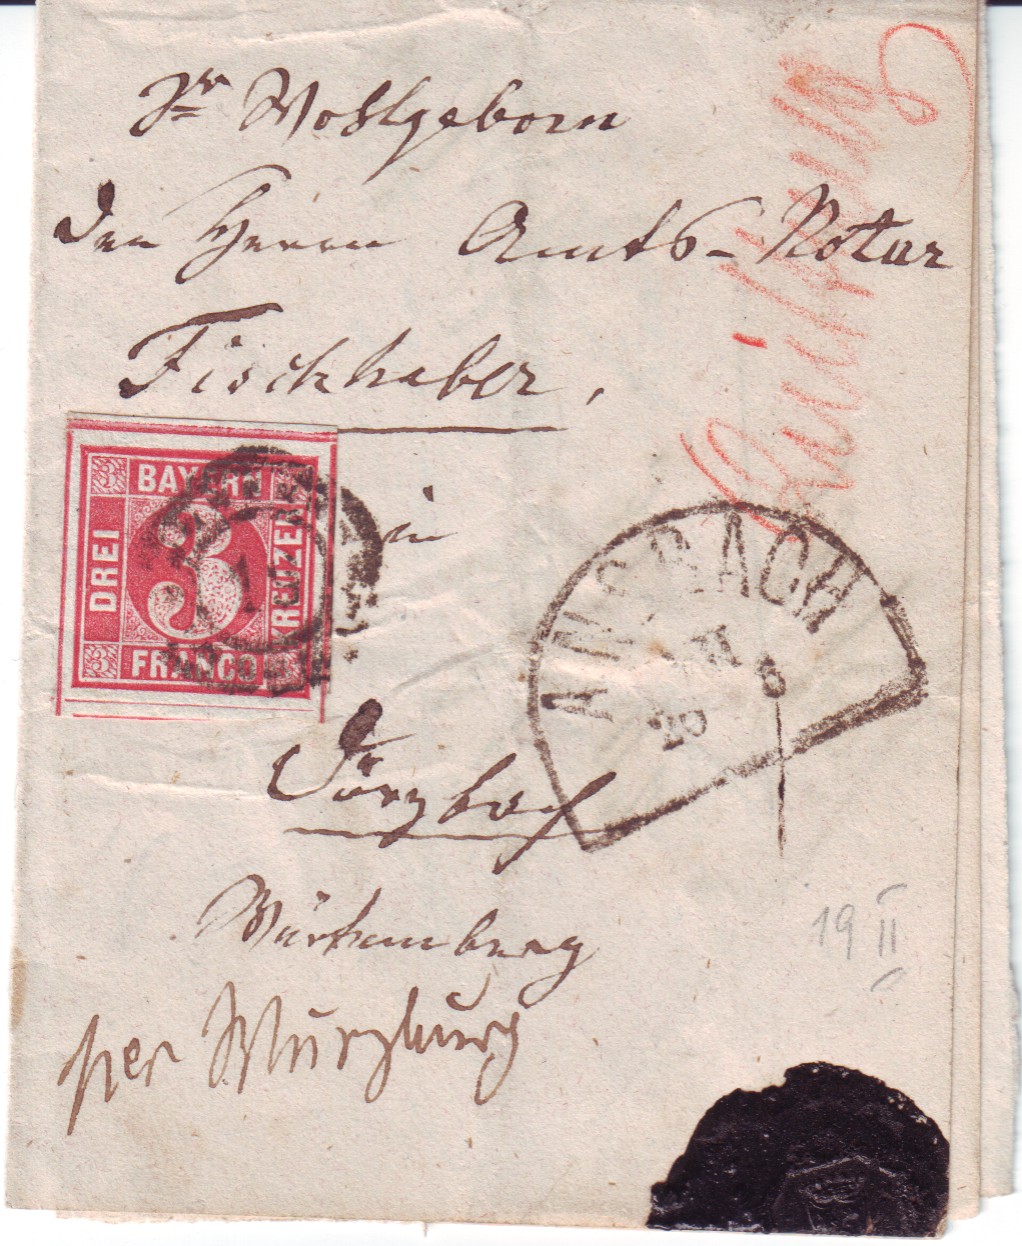 Sr Wohlgeborn
den Herrn Amts-Notar
Fischhaber,
3 BAYERN
DREI 3 KREUZER
3 FRANCO
in
ANSBACH
VI
Dörzbach
Würtemberg
per Würzburg
19 II